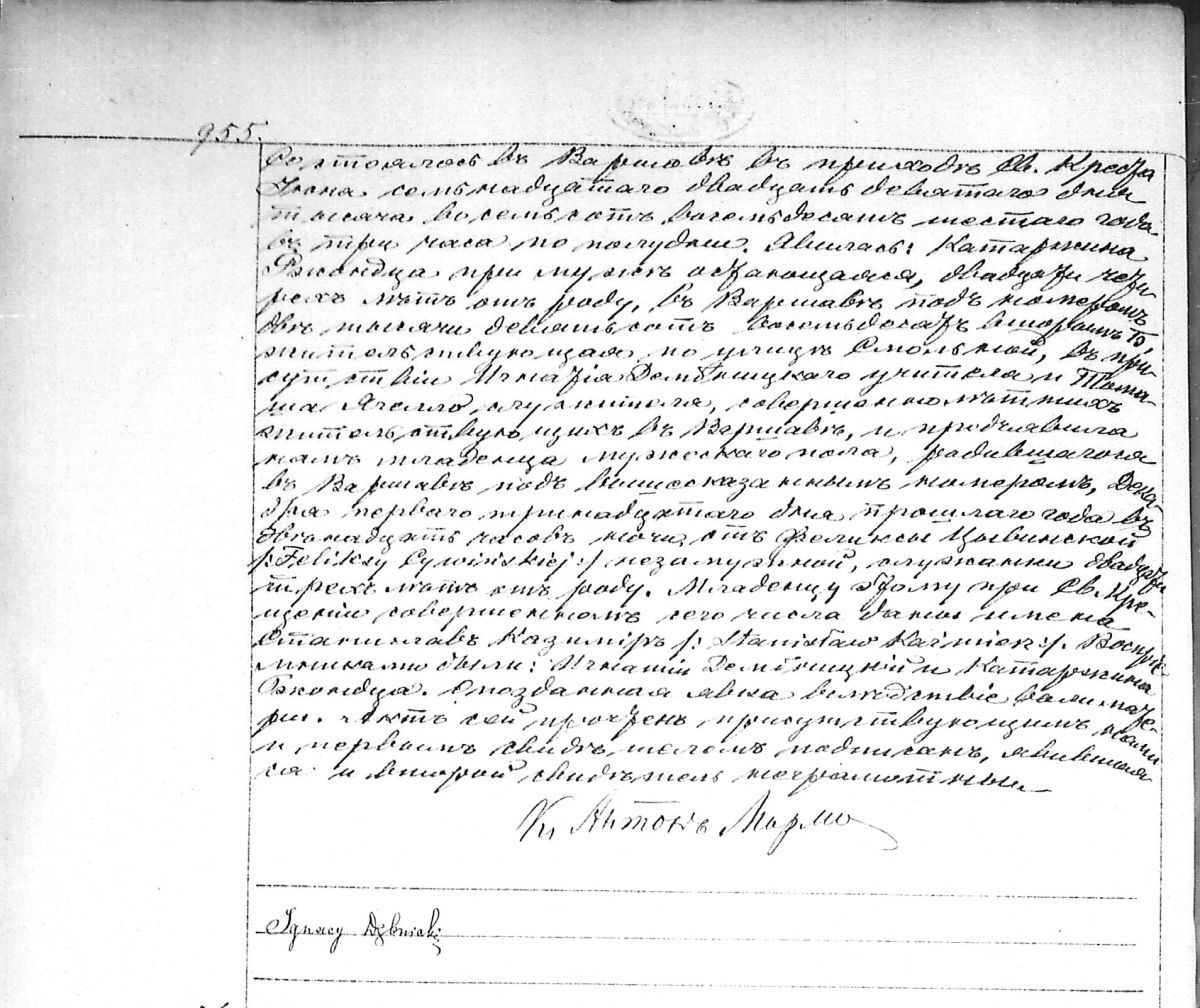 955.
Состоялось въ Варшавѣ въ приходѣ Св. Креста
Іюня семьнадцатаго двадцать девятаго дня
тысяча восемьсотъ восемьдесятъ шестаго года
въ три часа по полудни. Явилась: Катаржина
Ржондца при мужѣ остающаяся, двадцати четы-
рехъ лѣтъ отъ роду, въ Варшавѣ подъ номеромъ
двѣ тысячи девятьсотъ восемьдесятъ вторымъ Б,
жительствующая по улицѣ Смольной, въ при-
сутствіи Игнатія Дембницкаго учителя и Тома-
ша Ягелло, служителя, совершеннолѣтнихъ
жительствующихъ въ Варшавѣ, и предъявила
намъ младенца мужескаго пола, родившагося
въ Варшавѣ подъ вышесказаннымъ номеромъ, Дека-
бря перваго тринадцатаго дня прошлаго года въ
двѣнадцать часовъ ночи, отъ Феликсы Цывинской
/:Feliksy Cywińskiej:/ незамужной, служанки двадцати
трехъ лѣтъ отъ роду. Младенцу этому при Св. Кре-
щеніи совершенномъ сего числа даны имена
Станиславъ Казиміръ /: Stanisław Kaźmierz:/. Воспріе-
мниками были: Игнатій Дембницкій и Катаржина
Ржондца. Опозданная явка вслѣдствіе воли мате-
ри. Актъ сей прочтенъ присутствующимъ нами
и первымъ свидѣтелемъ подписанъ, явившаяся
ся и второй свидѣтель неграмотны.
Кс Антонъ
Ignacy Dębnicki